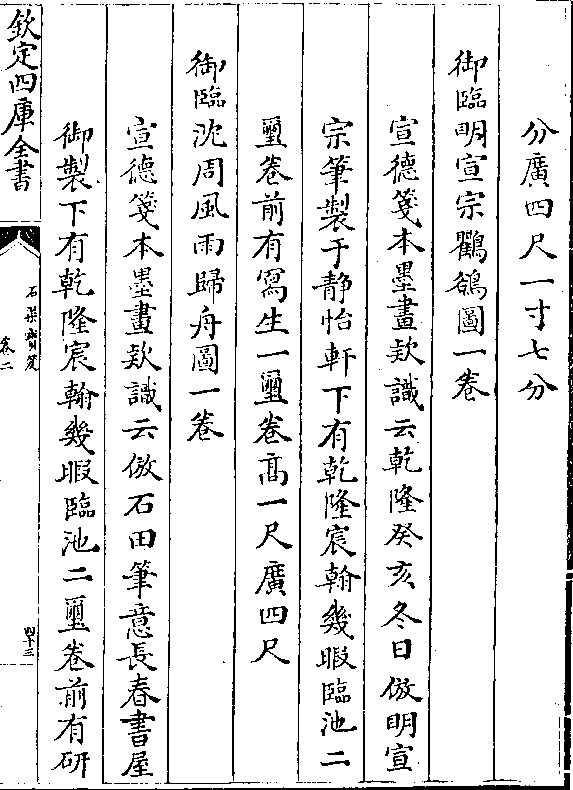 分廣四尺一寸七分
御臨明宣宗鸜鵒圖一卷
宣德箋本墨畫欵識云乾隆癸亥冬日倣明宣
宗筆製于静怡軒下有乾隆宸翰幾暇臨池二
璽卷前有寫生一璽卷髙一尺廣四尺
御臨沈周風雨歸舟圖一卷
宣德箋本墨畫欵識云倣石田筆意長春書屋
御製下有乾隆宸翰幾暇臨池二璽卷前有研
欽定四庫全書
石渠寳笈
卷二
四十三